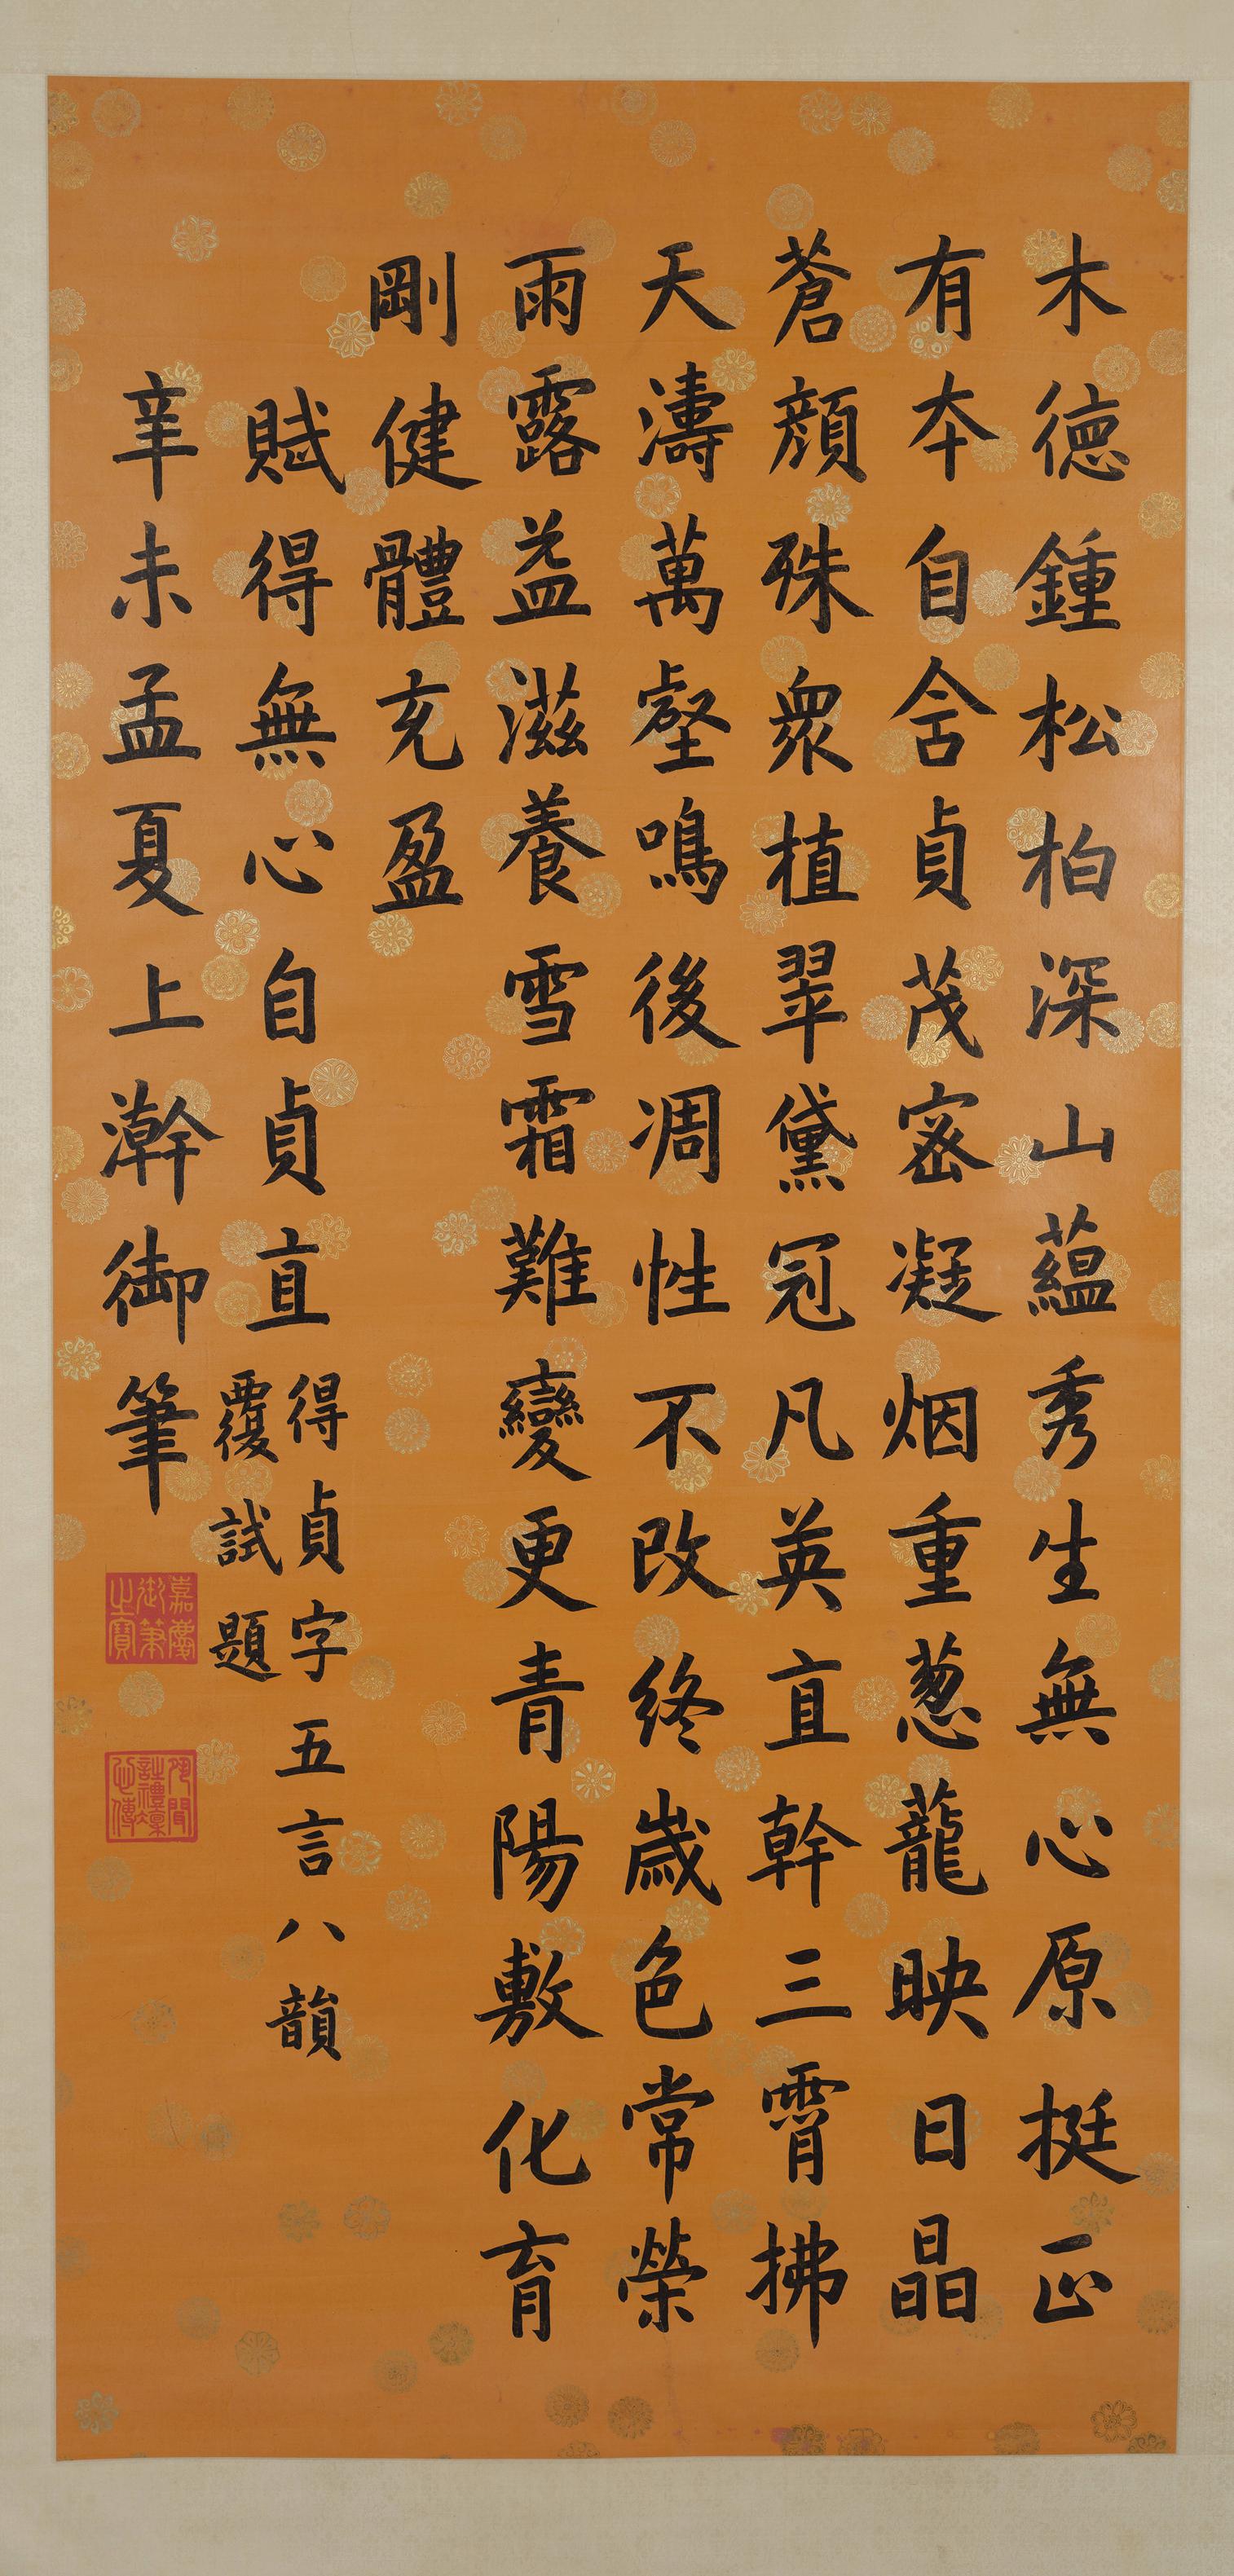 木德鍾松柏深山蘊秀生無心原挺正
有本自含貞茂密凝烟重蔥蘢映日晶
蒼顏殊眾植翠黛冠凡英直幹三霄拂
天濤萬壑鳴後凋性不改終歲色常榮
雨露益滋養雪霜難變更青陽敷化育
剛健體充盈
賦得無心自貞直
得貞字五言八韻
覆試題
辛未孟夏上澣御筆
嘉慶御筆之寶
聞詩禮凜心傳